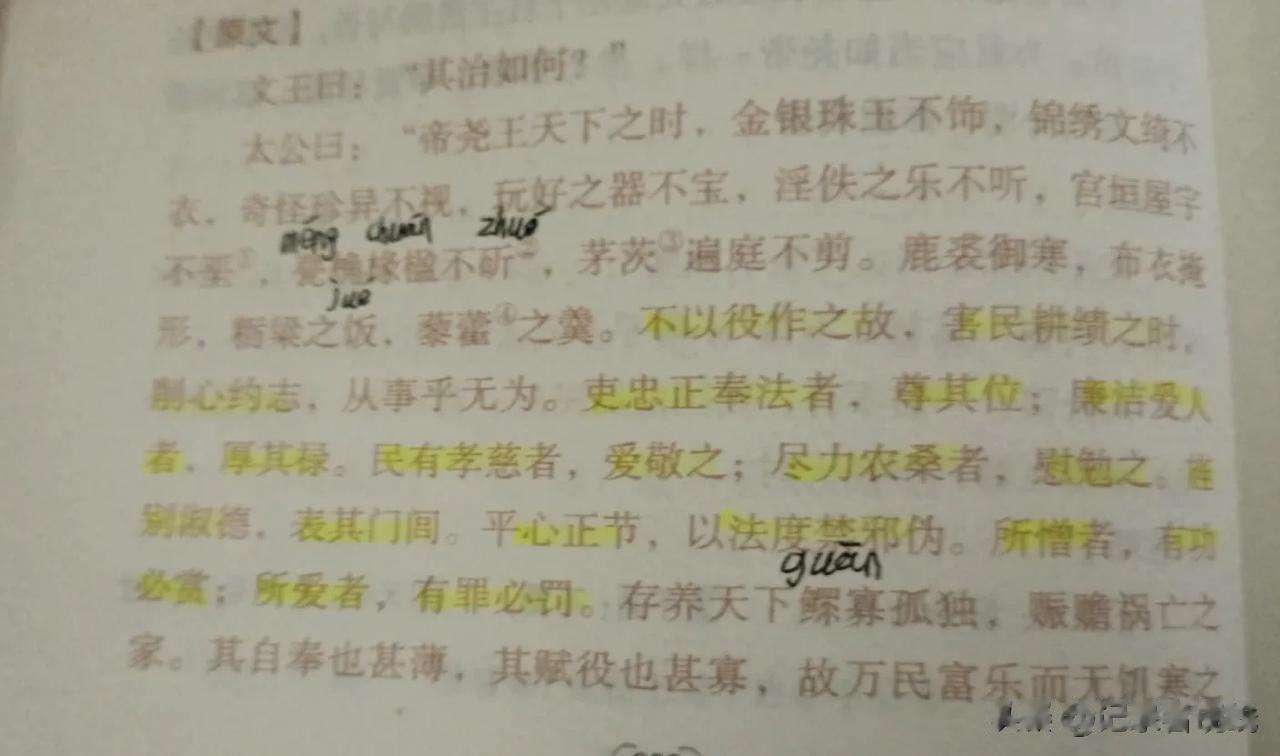 【原文】
文王曰：“其治如何？”
太公曰：“帝尧王天下之时，金银珠玉不饰，锦绣文绮不
衣，奇怪珍异不视，玩好之器不宝，淫佚之乐不听，宫垣屋宇
méng chuán zhuó
不垩①，甍桷椽楹不斫②，茅茨③遍庭不剪。鹿裘御寒，布衣掩
jue
形，粝粱之饭，藜藿④之羹。不以役作之故，害民耕绩之时，
削心约志，从事乎无为。吏忠正奉法者，尊其位；廉洁爱人
者，厚其禄。民有孝慈者，爱敬之；尽力农桑者，慰勉之。旌
别淑德，表其门闾。平心正节，以法度禁邪伪。所憎者，有功
guān
必赏；所爱者，有罪必罚。存养天下鳏寡孤独，赈赡祸亡之
家。其自奉也甚薄，其赋役也甚寡，故万民富乐而无饥寒之